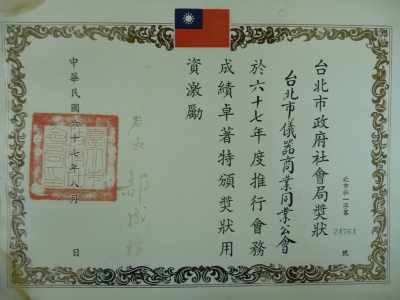 台北市政府社會局獎狀
北市社一字第
24761
號
台北市儀器商業同業公會
於六十七年度推行會務
成績卓著特頒獎狀用
資激勵
局長
中華民國六十七年八月 日